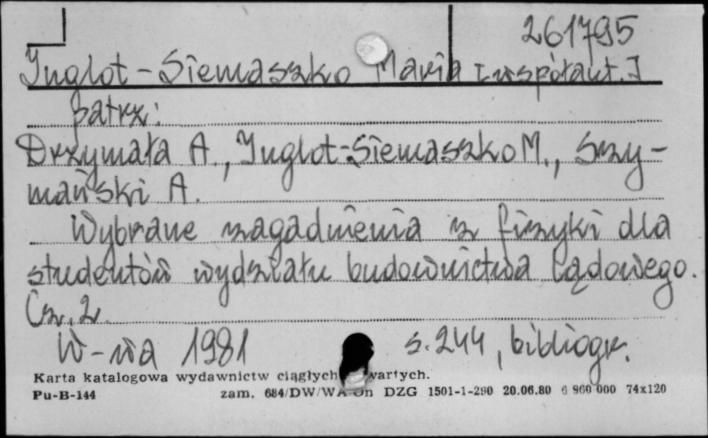 261795
Inglot-Siemaszko Maria [współaut.]
patrz:
Drzymała A., Inglot-Siemaszko M., Szy-
mański A.
Wybrane zagadnienia z fizyki dla
studentów wydziału budownictwa lądowego.
Cz. 2.
W-wa 1981 s. 244, bibliogr.
Karta katalogowa wydawnictw ciągłych zwartych.
Pu-B-144 zam. 684/DW/WA-Un DZG 1501-1-290 20.06.80 6 960 000 74x120